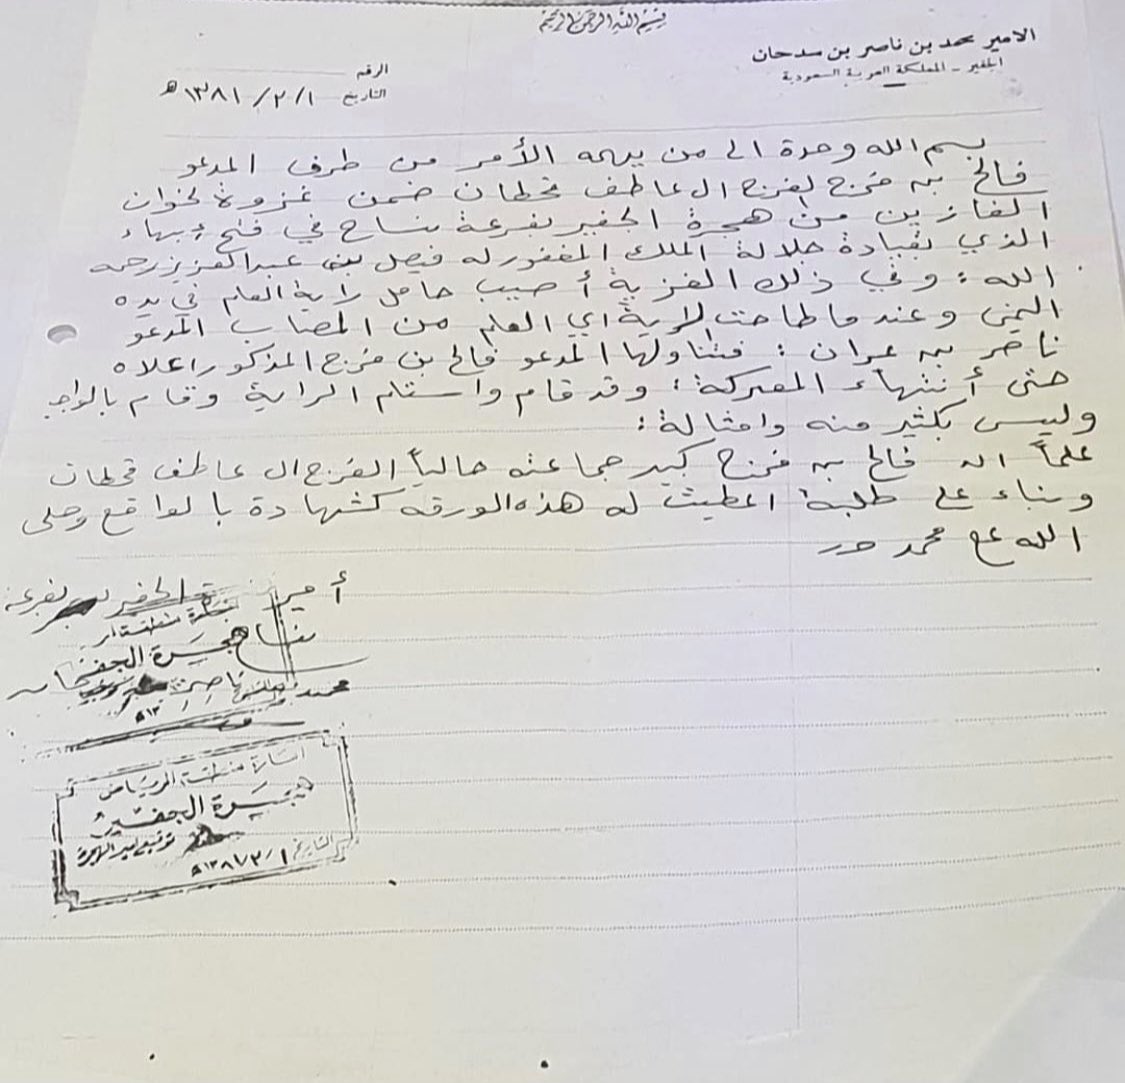 بسم الله الرحمن الرحيم
الامير محمد بن ناصر بن سدحان
الجفير - المملكة العربية السعودية
الرقم
التاريخ ١/٢/١٣٨١هـ
بسم الله وحدة الى من يهمه الأمر من طرف المدعو
فالح بن مفرج لفرج ال عاطف قحطان ضمن غزوة لخوان
الغازين من هجرة الجفير نفرعة نساح في فتح ابهاء
الذي بقيادة جلالة الملك المغفور له فيصل بن عبدالعزيز رحمه
الله : وفي ذلك الغزية أصيب حامل راية العلم في يده
اليمنى وعند ما طاحت الراية اي العلم من المصاب المدعو
ناصر بن عمران : فتناولها المدعو فالح بن مفرج المذكور اعلاه
حتى أنتهاء المعركة : وقد قام واستلم الراية وقام بالواجب
وليس بكثير منه وامثالة :
علماً ان فالح بن مفرج كبير جماعته حالياً الفرج ال عاطف قحطان
وبناء على طلبة اعطيت له هذه الورقه كشهادة بالواقع وصلى
الله على محمد
أمير الجفير نفرعة
نساح
هجرة الجفير
محمد بن ناصر
امارة منطقة الرياض
هجرة الجفير
توقيع امير الهجرة
التاريخ ١/٢/١٣٨١هـ